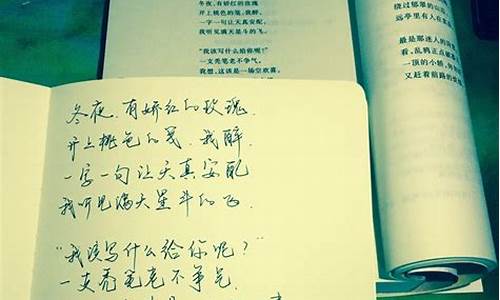 冬夜，有娇红的玫瑰
开上桃色的笺，我醉，
一字一句让天真安配，
我听见满天星斗的飞。
“我该写什么给你呢？”
一支秃笔老不争气，
我想，这该是一场空欢喜。
绕过郁翠的山
远亭里有人在
最是那迷人的
看，乱鸦正点破
一顶的小轿，
又赶着前路的
冬夜，有娇红的玫瑰，
开上桃色的笺，我醉，
一字一句让天真安配
我听见满天星斗的飞.
“我该写什么给你呢？”
一支秃笔老不争气.